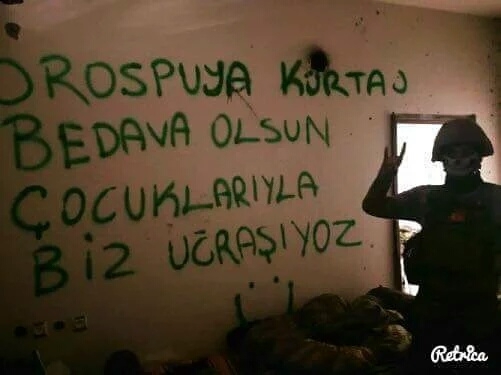 OROSPUYA KÜRTAJ
BEDAVA OLSUN
ÇOCUKLARIYLA
BİZ UĞRAŞIYOZ
Retrica